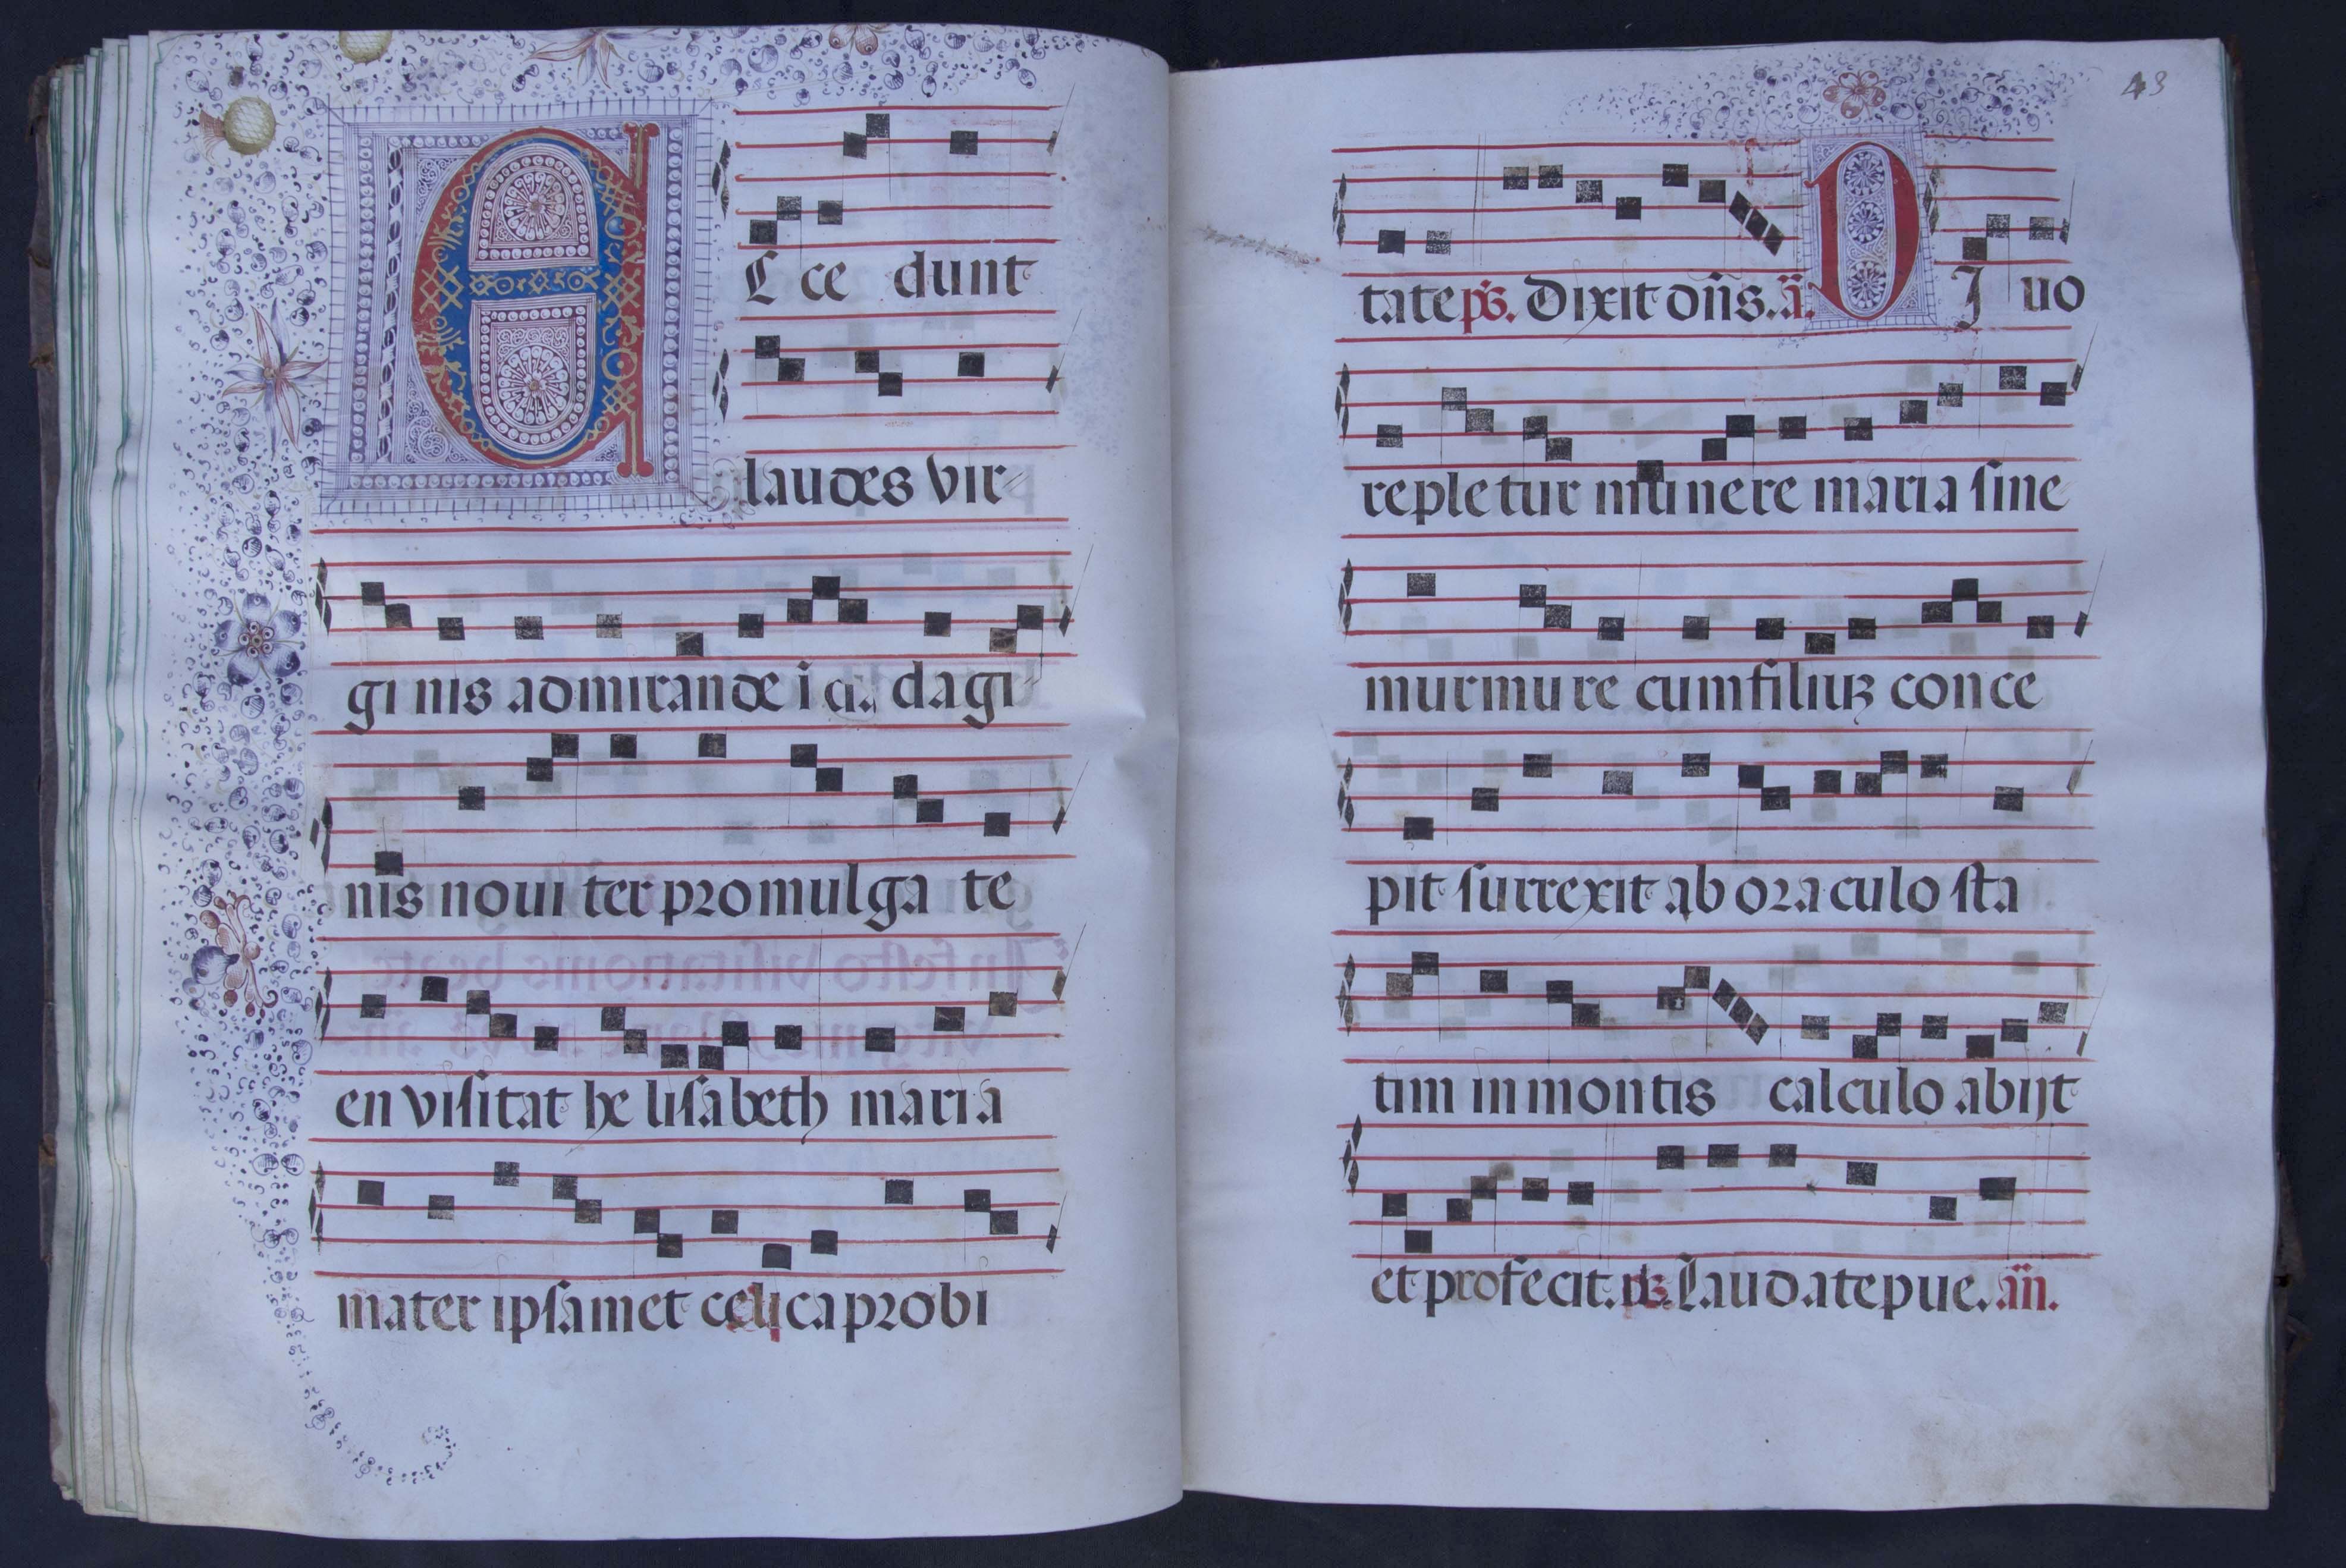 E Cce dunt
laudes vir-
ginis admirande i da gi-
nis nouiter promulgate
en visitat helisabeth maria
mater ipsamet celica probi
43
tate ps. Dixit dn̄s. ā. D Iuo
repletur munere maria sine
murmure cum filiuꝫ conce
pit surrexit ab oraculo sta
tim in montis calculo abijt
et profecit. ps. Laudate pue. an̄.